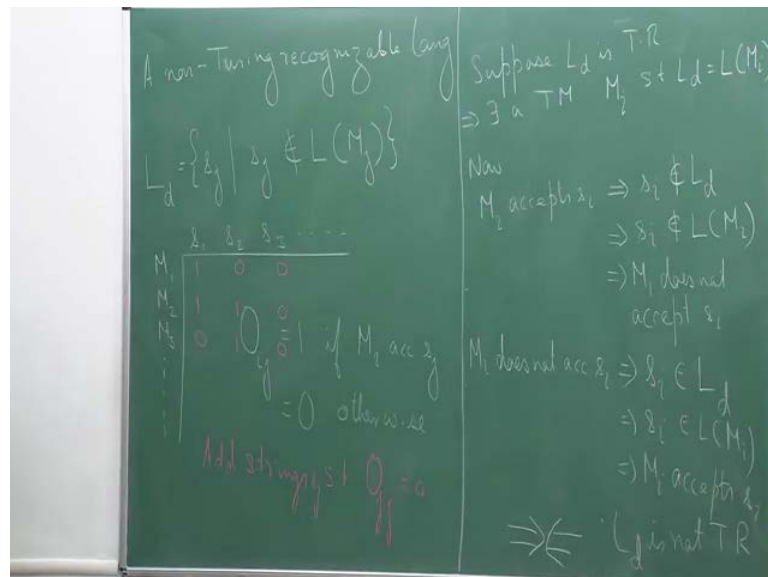 A non-Turing recognizable lang
L_d = {s_j | s_j ∉ L(M_j)}
s_1 s_2 s_3 .....
M_1 1 0 0
M_2 1 1 0
M_3 0 1 0
O_ij = 1 if M_i acc s_j
= 0 otherwise
Add strings s_j st O_jj = 0
Suppose L_d is T.R
⇒ ∃ a TM M_i st L_d = L(M_i)
Now
M_i accepts s_i ⇒ s_i ∉ L_d
⇒ s_i ∉ L(M_i)
⇒ M_i does not
accept s_i
M_i does not acc s_i ⇒ s_i ∈ L_d
⇒ s_i ∈ L(M_i)
⇒ M_i accepts s_i
L_d is not TR